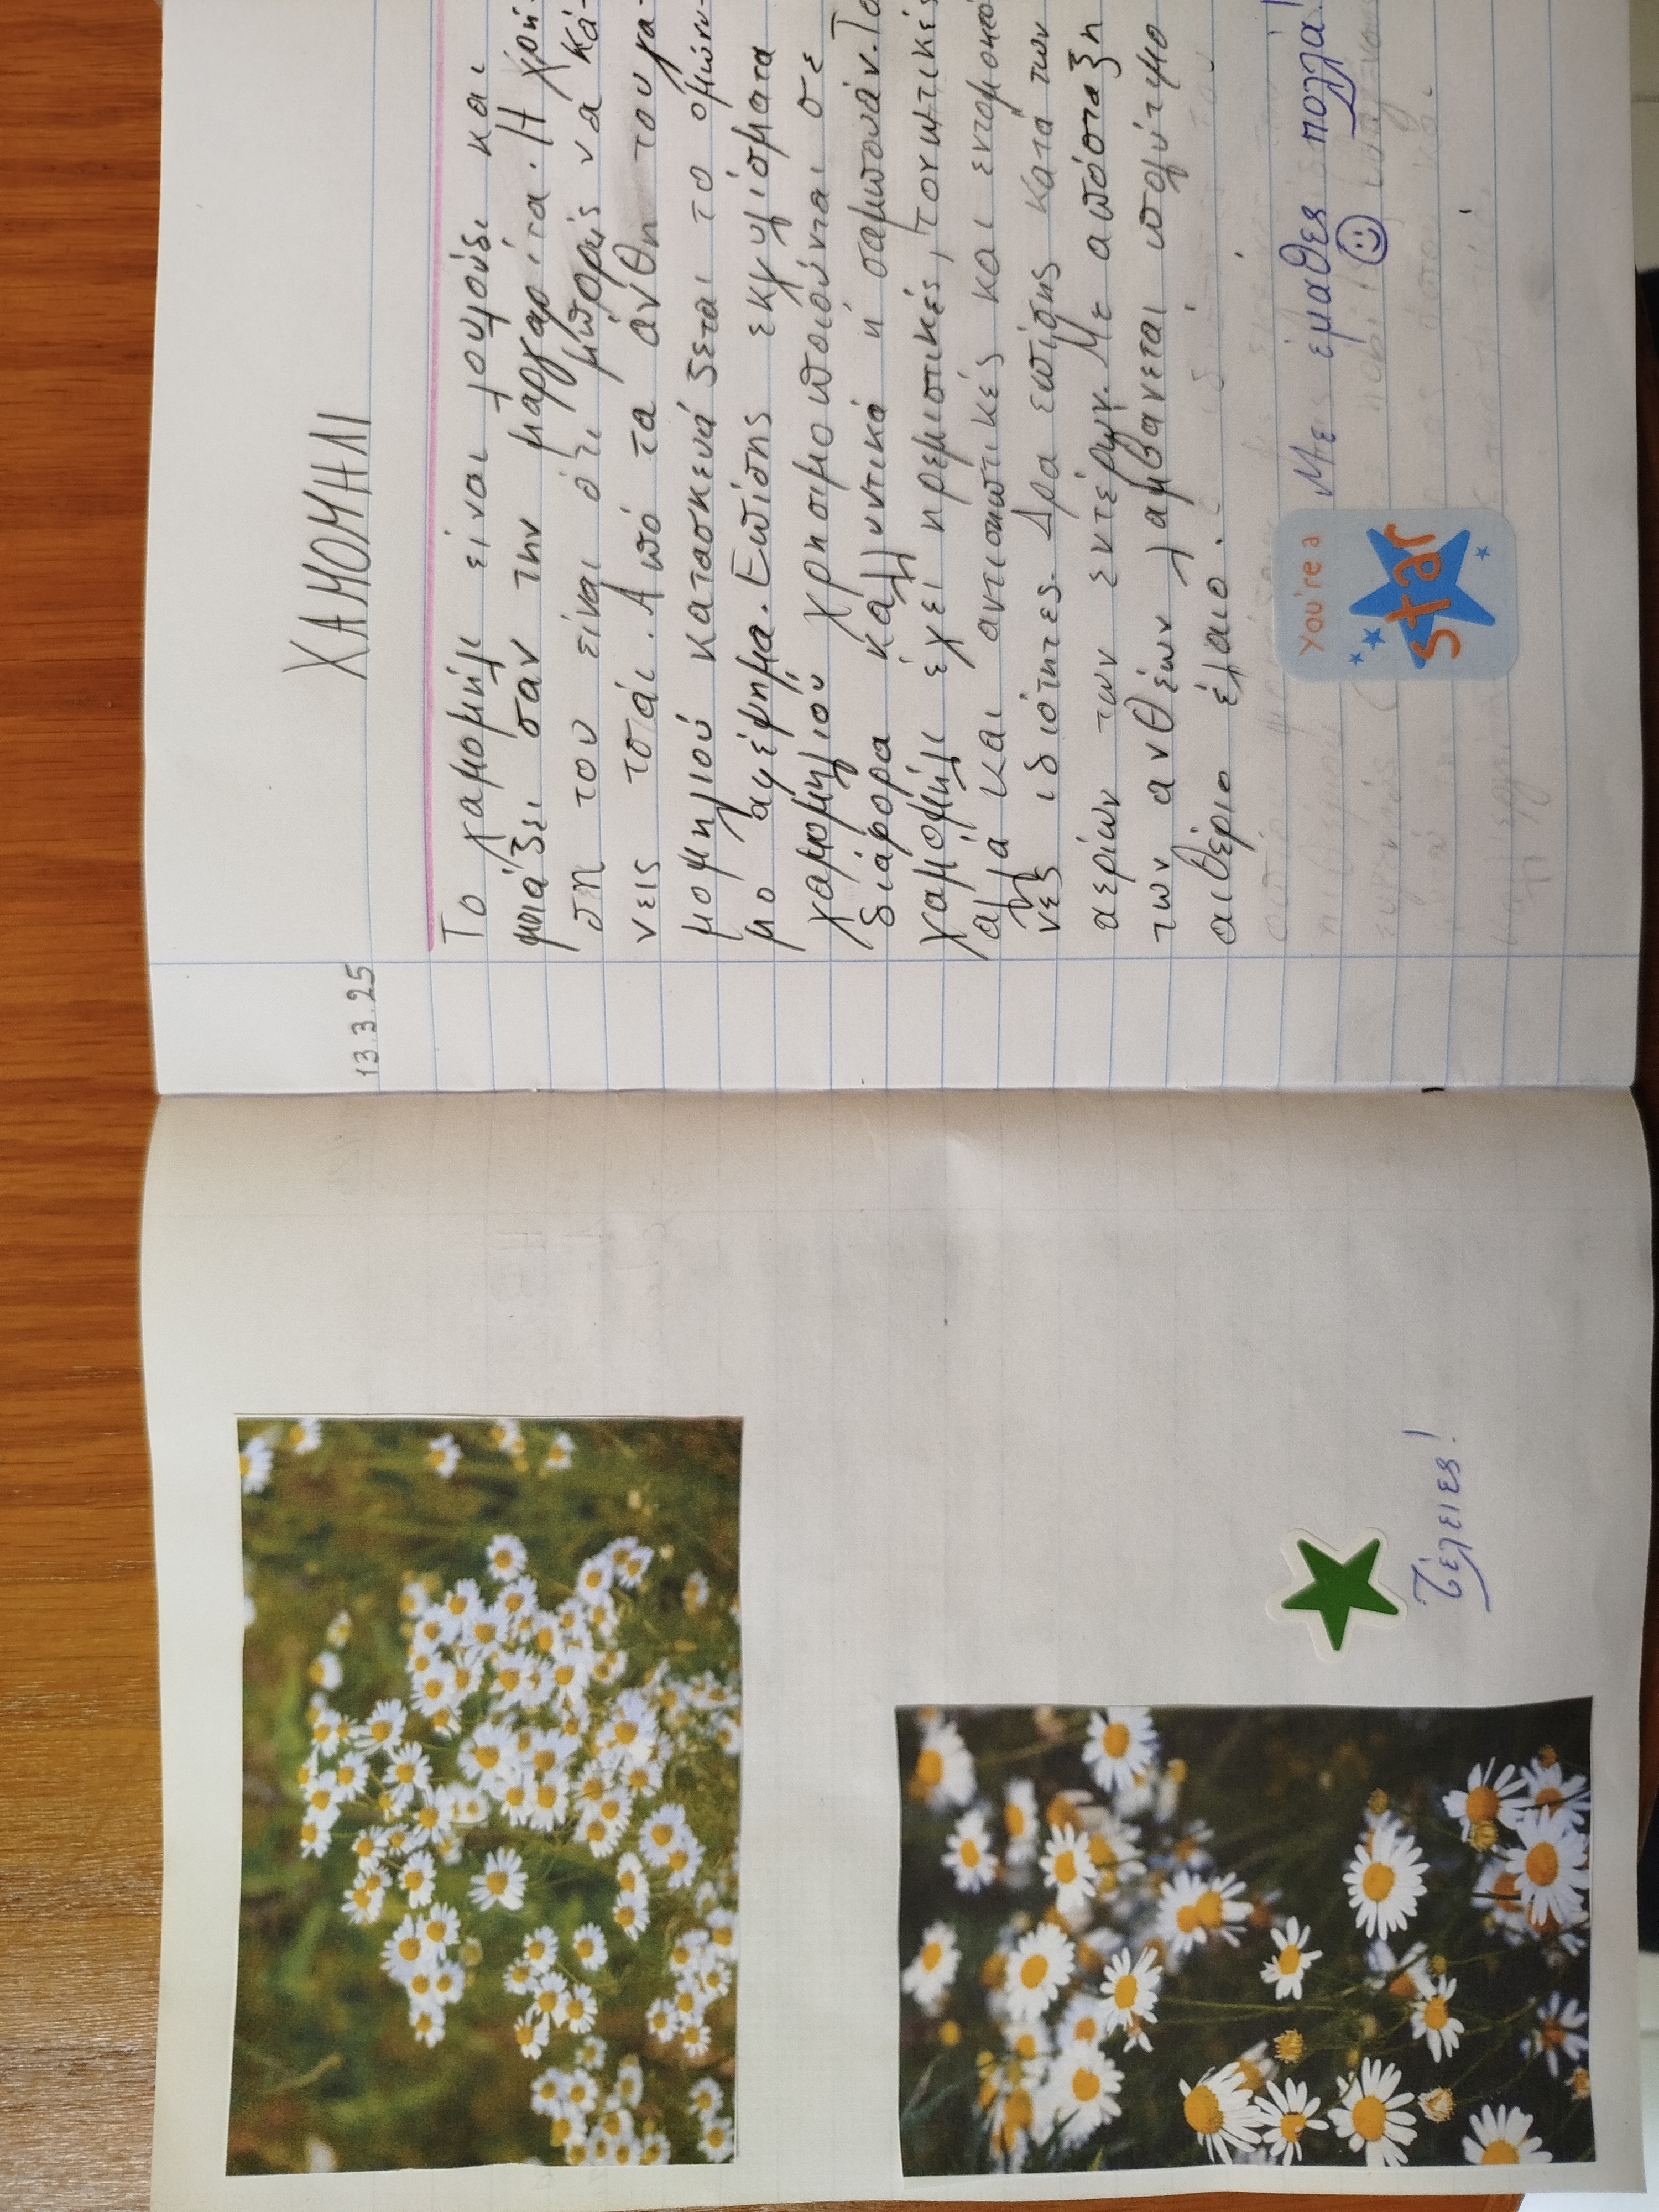 Τέλειες!
13.3.25
ΧΑΜΟΜΗΛΙ
Το χαμομήλι είναι λουλούδι και
μοιάζει σαν την μαργαρίτα. Η χρή-
ση του είναι ότι μπορείς νά κά-
νεις τσάι. Από τα άνθη του χα-
μομηλιού κατασκευάζεται το ομώνυ-
μο αφέψημα. Επίσης εκχυλίσματα
χαμομηλιού χρησιμοποιούνται σε
διάφορα καλλυντικά ή σαμπουάν. Το
χαμομήλι έχει ηρεμιστικές, τονωτικές
αλλά και αντισηπτικές και εντομοκτό
νες ιδιότητες. Δρα επίσης κατά των
αερίων των εντέρων. Με απόσταξη
των ανθέων λαμβάνεται πολύτιμο
αιθέριο έλαιο.
you're a
star
Με έμαθες πολλά!